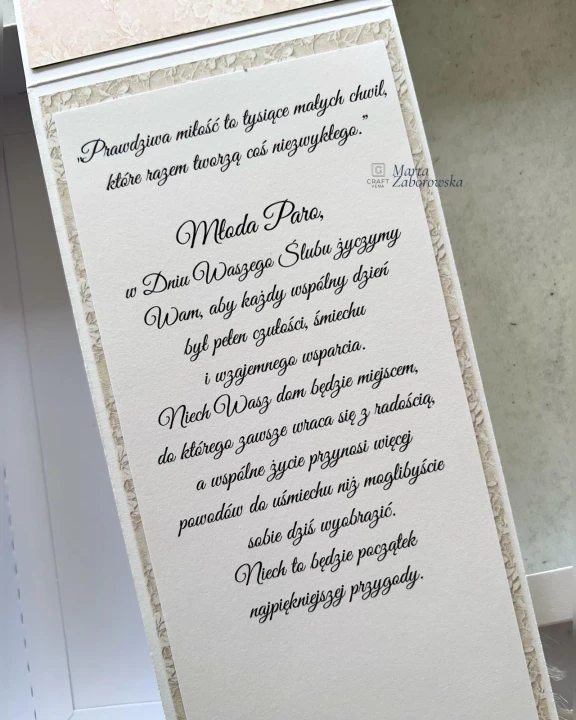 „Prawdziwa miłość to tysiące małych chwil,
które razem tworzą coś niezwykłego.”
G
CRAFT
VENA
Marta
Zaborowska
Młoda Paro,
w Dniu Waszego Ślubu życzymy
Wam, aby każdy wspólny dzień
był pełen czułości, śmiechu
i wzajemnego wsparcia.
Niech Wasz dom będzie miejscem,
do którego zawsze wraca się z radością,
a wspólne życie przynosi więcej
powodów do uśmiechu niż moglibyście
sobie dziś wyobrazić.
Niech to będzie początek
najpiękniejszej przygody.